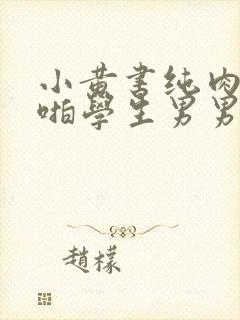 小黄書纯肉
啪學生男男
趙檬